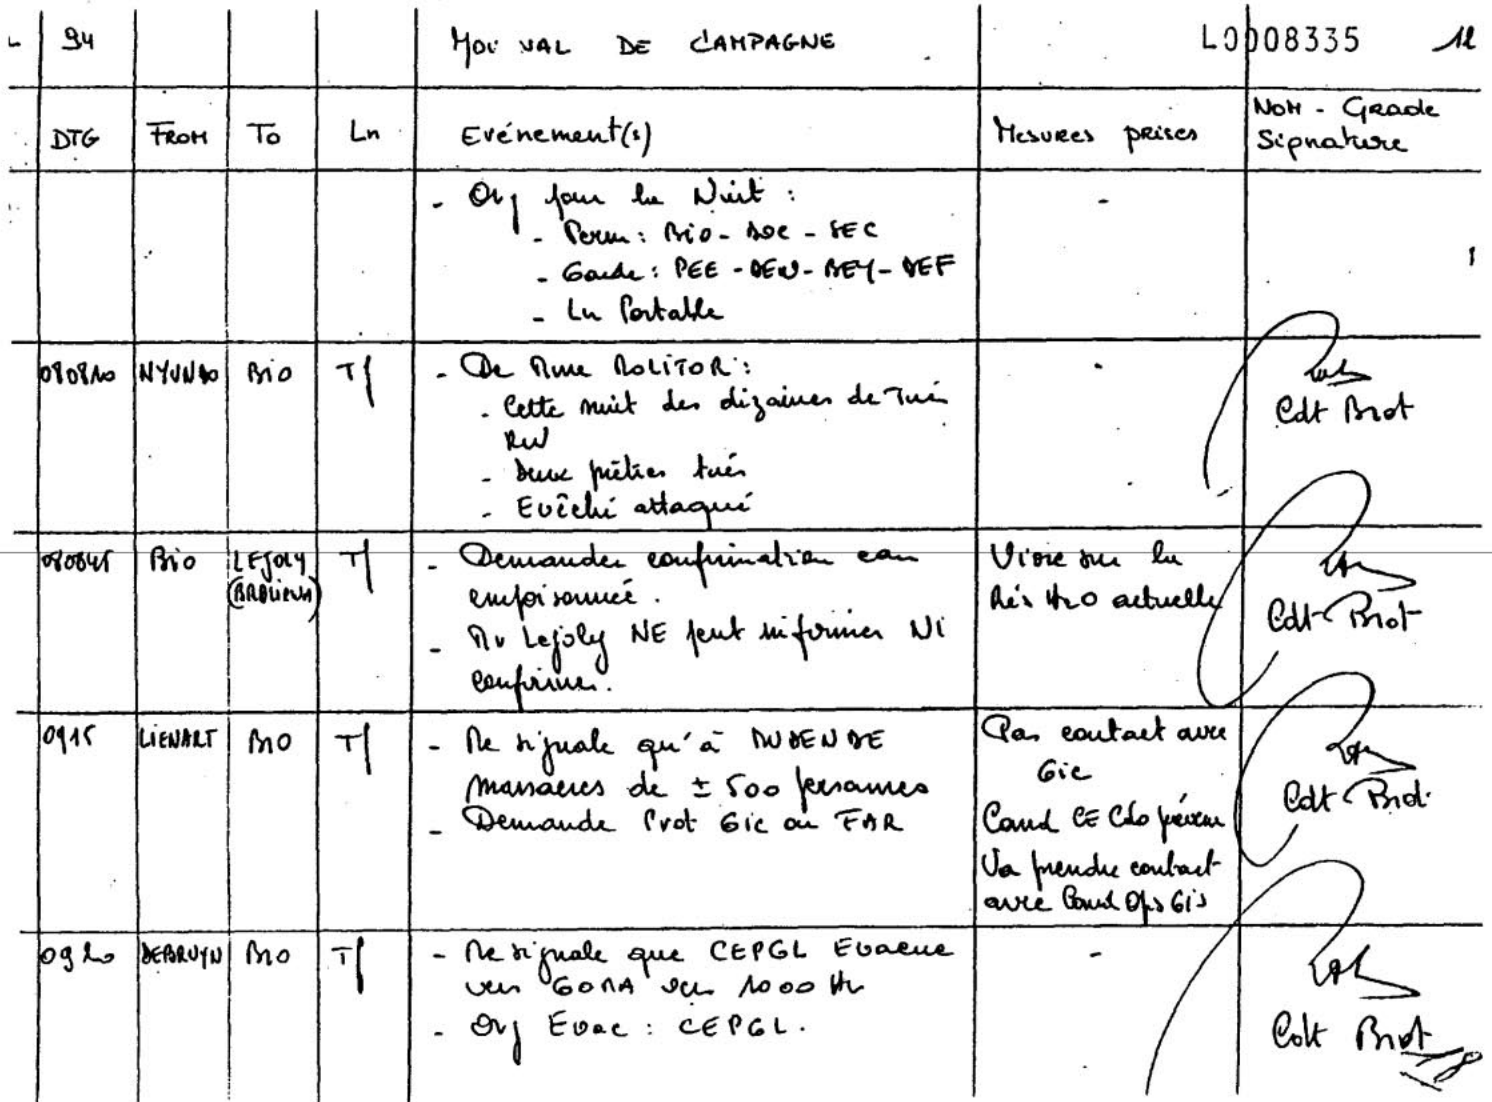 94 JOURNAL DE CAMPAGNE L0008335 12
DTG FROM To Ln Evénement(s) Mesures prises NOM - Grade
Signature
- Org pour la Nuit :
- Perm : BIO - DOC - SEC
- Garde : PEE - DEW - BEY - DEF
- Ln Portable
080810 NYUNDO BIO Tf - De Mme MOLITOR :
- Cette nuit des dizaines de Tués
RW
- Deux prêtres tués
- Evêché attaqué
Cdt Biot
080845 BIO LEJOLY Tf - Demander confirmation eau
empoisonnée.
- Mr Lejoly NE peut infirmer NI
confirmer.
Vivre sur la
Rés H2O actuelle
Cdt Biot
0915 LIENART BIO Tf - Me signale qu'à MUDENDE
massacres de ± 500 personnes
- Demande Prot Gie ou FAR
Pas contact avec
Gie
Comd CE Cdo prévenu
Va prendre contact
avec Comd Ops Gis
Cdt Biot
0920 DEBRUYN BIO Tf - Me signale que CEPGL Evacue
vers GOMA vers 1000 Hr
- Org Evac : CEPGL.
Cdt Biot